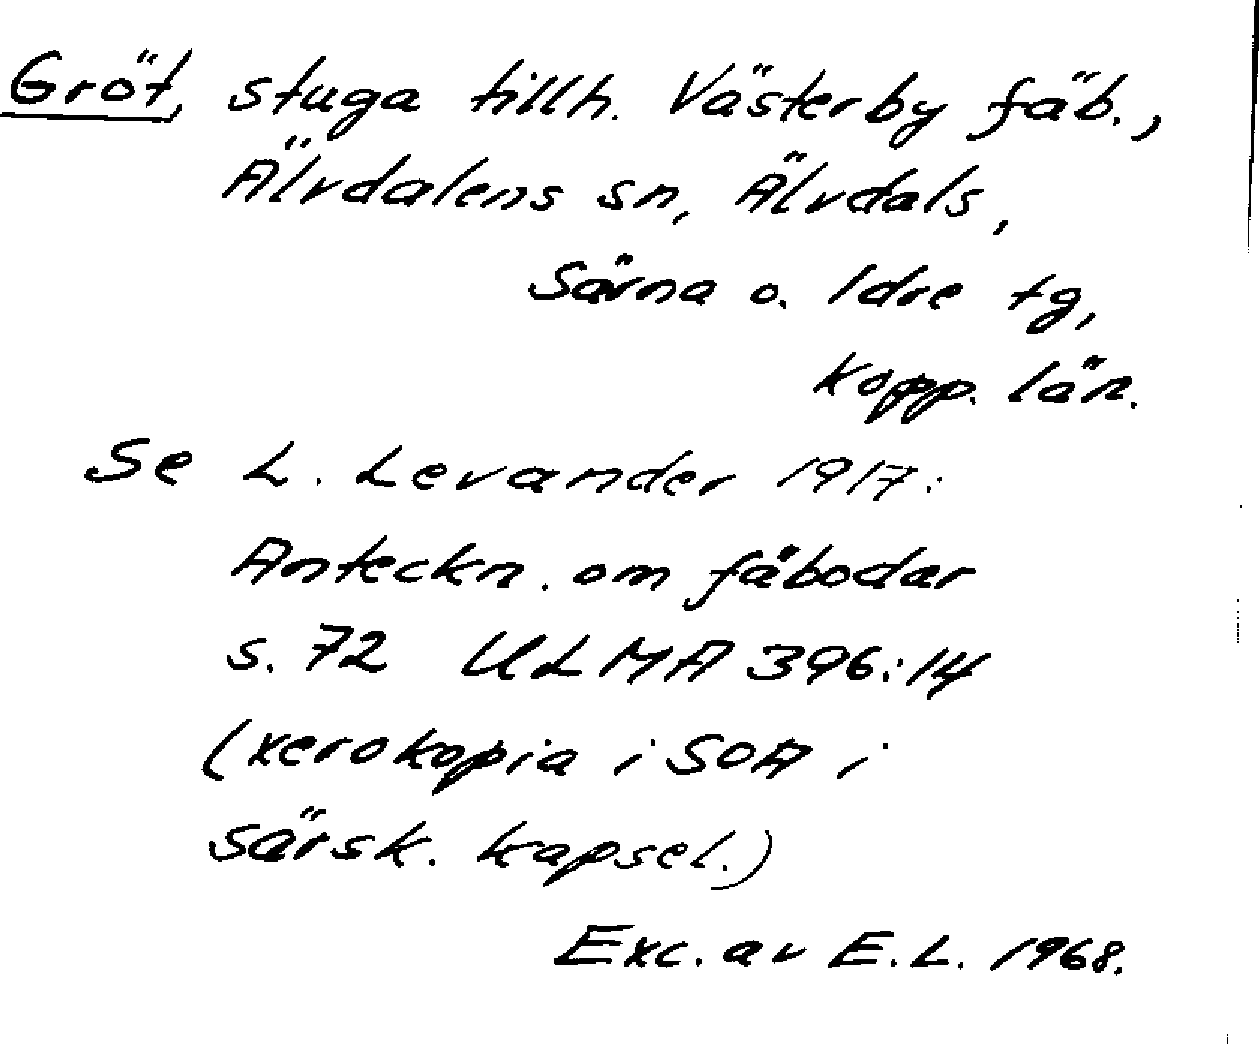 Gröt, stuga tillh. Västerby fäb.,
Älvdalens sn, Älvdals,
Särna o. Idre tg,
Kopp. län.
Se L. Levander 1917:
Anteckn. om fäbodar
s. 72 ULMA 396:14
(xerokopia i SOA i
särsk. kapsel.)
Exc. av E.L. 1968.